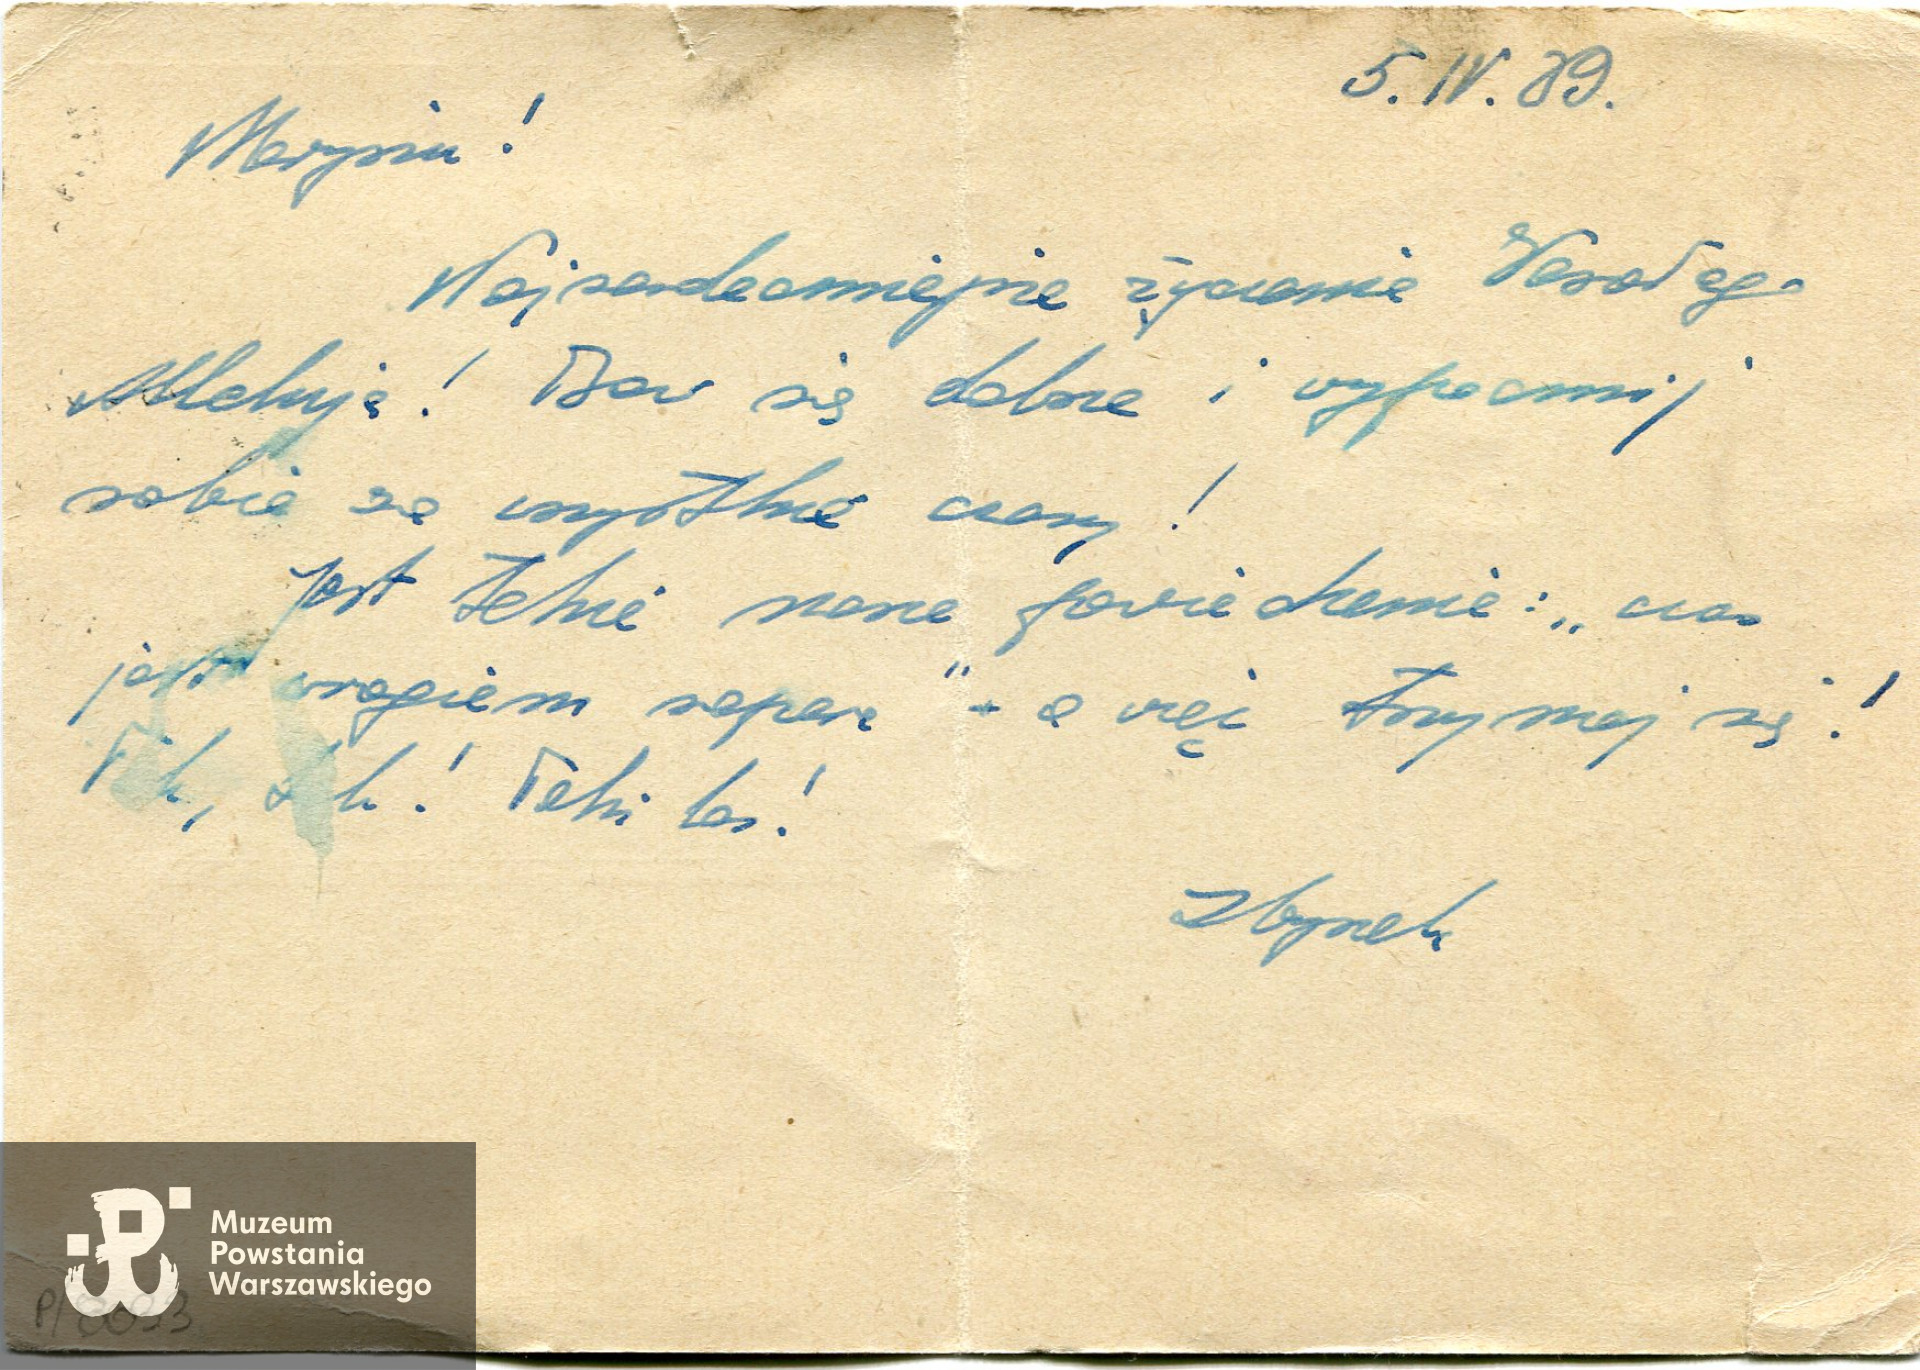 5.IV.39.
Marysiu!
Najserdeczniejsze życzenia Wesołego
Alleluja! Baw się dobrze i wypocznij
sobie za wszystkie czasy!
Jest takie nasze powiedzenie: „czas
jest wrogiem sapera" - a więc trzymaj się!
Tak, tak! Taki los!
Zbyszek
Muzeum
Powstania
Warszawskiego
P/8033